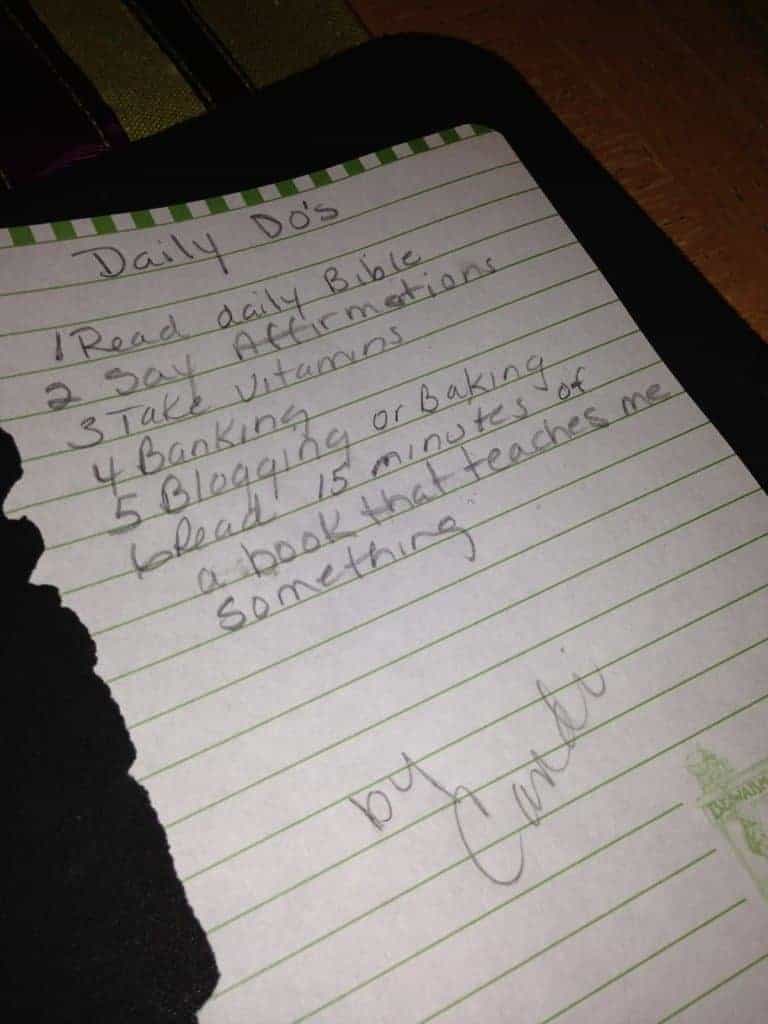 Daily DO's
1 Read daily Bible
2 Say Affirmations
3 Take Vitamins
4 Banking
5 Blogging or Baking
6 Read 15 minutes of
a book that teaches me
something
by
Candi